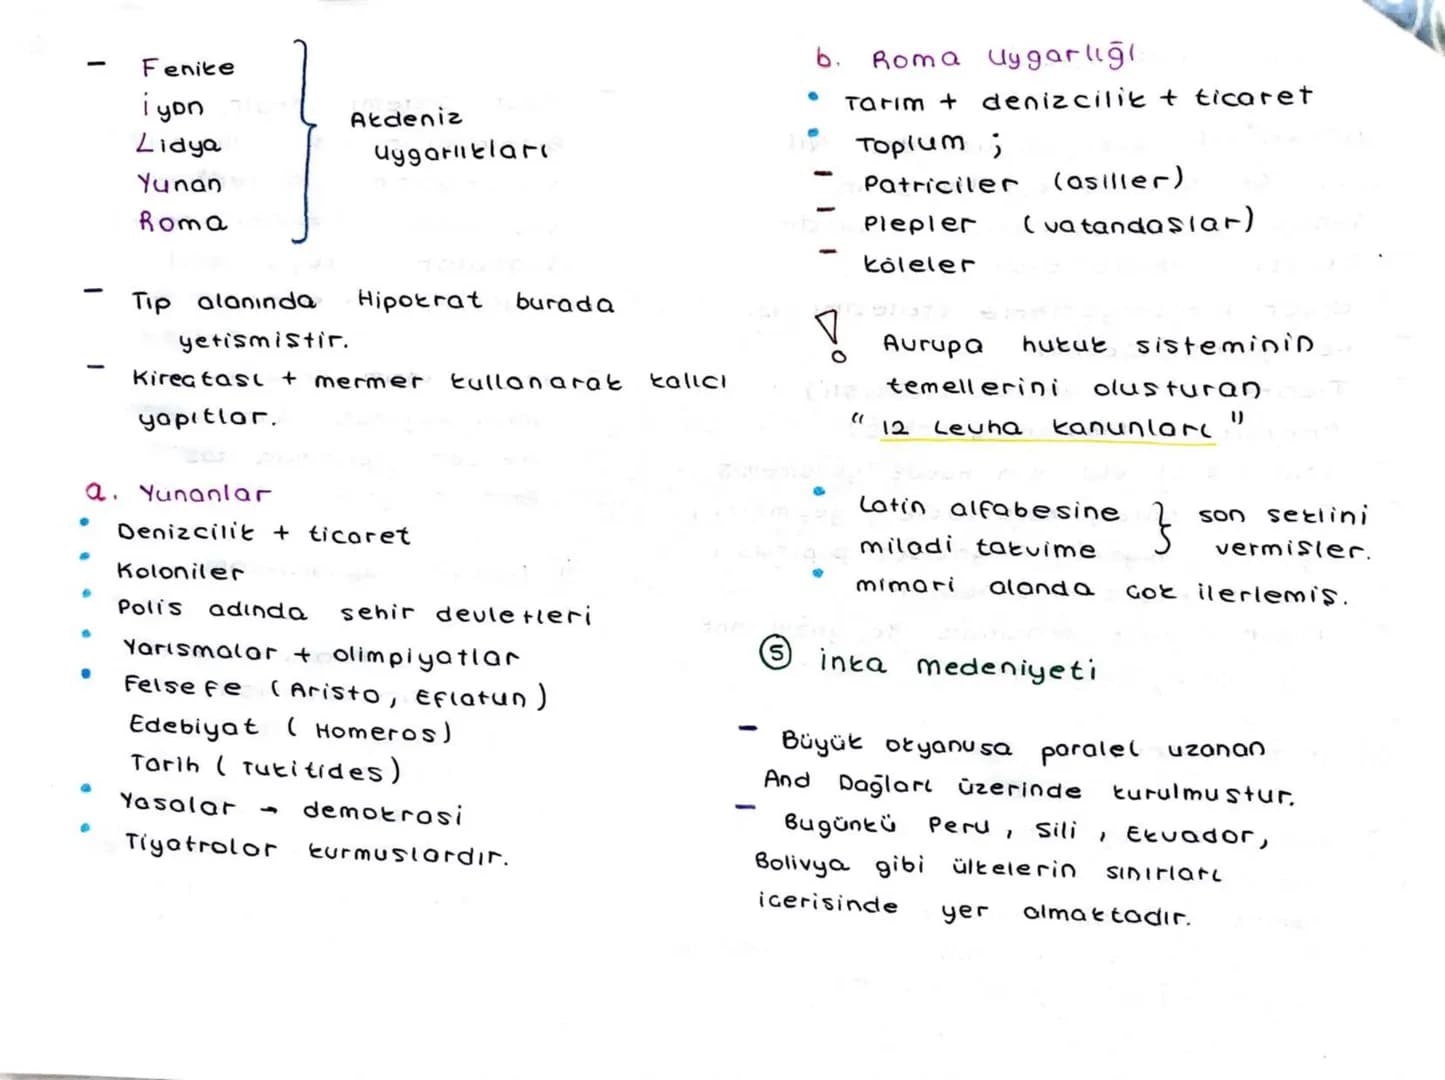 - Fenike
İyon
Lidya
Yunan
Roma
Akdeniz
uygarlıkları
- Tıp alanında Hipokrat burada
yetismistir.
- Kirectası + mermer kullanarak kalıcı
yapıtlar.
a. Yunanlar
• Denizcilik + ticaret
• Koloniler
• Polis adında sehir devletleri
• Yarısmalar + olimpiyatlar
• Felsefe (Aristo, Eflatun)
Edebiyat (Homeros)
Tarih (Tukitides)
• Yasalar → demokrasi
• Tiyatrolar kurmuslardır.
b. Roma Uygarlığı
• Tarım + denizcilik + ticaret
• Toplum ;
- Patriciler (asiller)
- Plepler (vatandaslar)
- köleler
! Avrupa hukuk sisteminin
temellerini olusturan
"12 Levha kanunları"
• Latin alfabesine } son seklini
miladi takvime vermisler.
• mimari alanda cok ilerlemiş.
⑤ inka medeniyeti
- Büyük okyanusa paralel uzanan
And Dağları üzerinde kurulmustur.
- Bugünkü Peru, sili, Ekvador,
Bolivya gibi ülkelerin sınırları
icerisinde yer almaktadır.